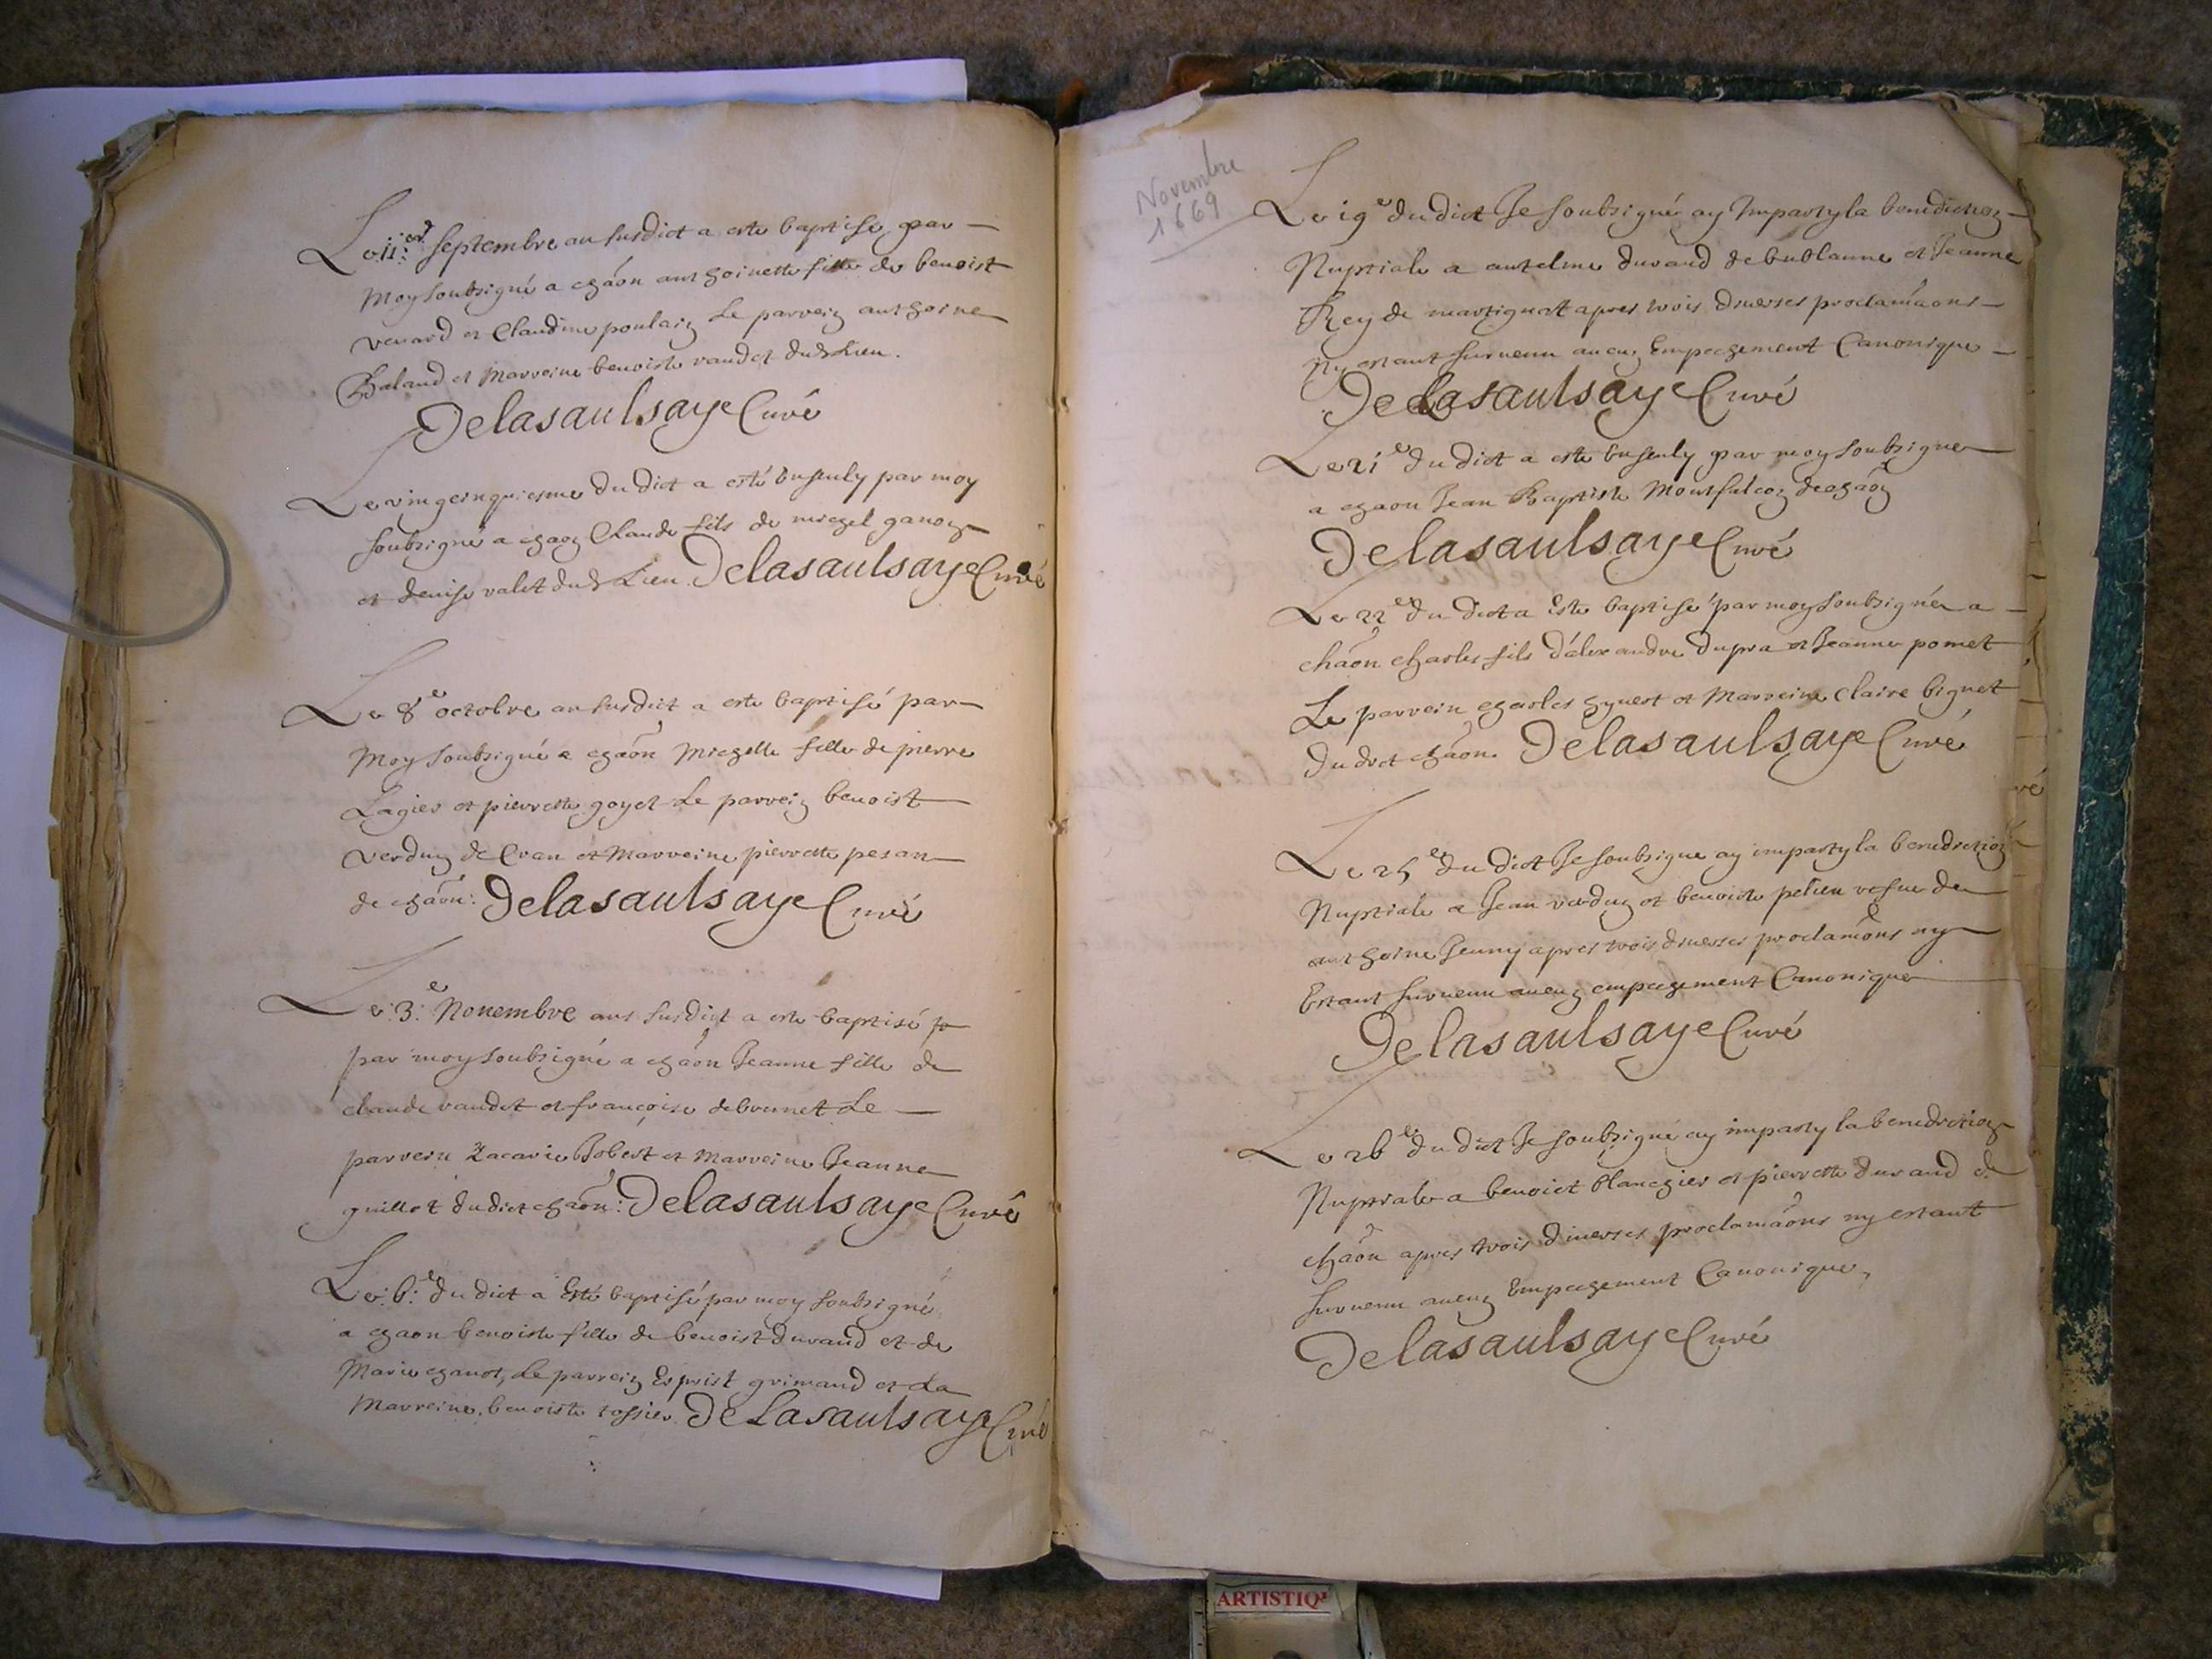 Le ii.e septembre an susdict a este baptisé par
Moy soubsigné a chãon anthoinette fille de benoist
venard et Claudine poulain Le parrein anthoine
Baland et Marreine benoiste vaudet dud Lieu.
Delasaulsaye Curé
Le vingcinquiesme du dict a esté Ensevely par moy
soubsigné a chaon Claude fils de michel ganon
et denise valet dud Lieu Delasaulsaye Curé
Le 8e octobre an susdict a este baptisé par
Moy soubsigné a chãon Michelle fille de pierre
Lagier et pierrette goyet Le parrein benoist
verdun de Cran et Marreine pierrette pesan
de chãon: Delasaulsaye Curé
Le :3:e Nouembre ans susdict a este baptisé
par moy soubsigné a chãon Jeanne fille de
claude vaudet et françoise debrunet Le
parrein Zacarie Robert et Marreine Jeanne
guillot dudict chãon: Delasaulsaye Curé
Le :6:e du dict a Esté baptisé par moy soubsigné
a chaon benoiste fille de benoist durand et de
Marie chanot, Le parrein Esprist grimaud et La
Marreine benoiste rossier Delasaulsaye Curé
Novembre
1669
Le 19e du dict Je soubsigné ay Imparty la benediction
Nuptiale a antelme durand de bublanne et Jeanne
Rey de martignat apres trois diuerses proclamãons
Ny estant suruenu aucun Empechement Canonique
Delasaulsaye Curé
Le 21e du dict a este Ensevely par moy soubsigné
a chaon Jean Baptiste Montfalcon de chãon
Delasaulsaye Curé
Le 22e du dict a Este baptisé par moy soubsigné a
chãon charles fils d'alexandre dupra et Jeanne pomet
Le parrein charles gynest et Marreine Claire bignet
du dict chãon. Delasaulsaye Curé
Le 25e du dict Je soubsigné ay imparty la benediction
Nuptiale a Jean verdun et benoiste pelieu vefue de
anthoine Jeuny apres trois diuerses proclamãons ny
Estant suruenu aucun empechement Canonique
Delasaulsaye Curé
Le 26e du dict Je soubsigné ay imparty la benediction
Nuptiale a benoict blanchier et pierrette durand de
chãon apres trois diuerses proclamãons ny estant
suruenu aucun Empechement Canonique,
Delasaulsaye Curé
ARTISTIQ